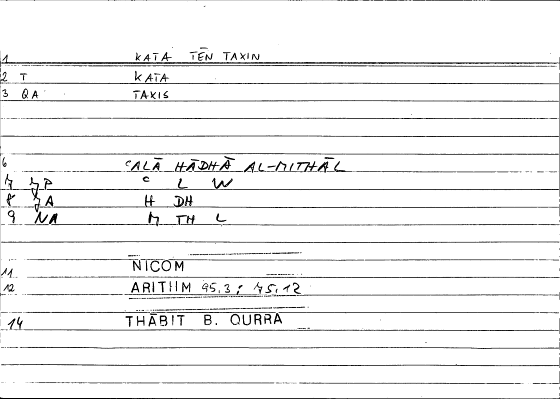 1 KATA TĒN TAXIN
2 T KATA
3 QA TAXIS
6 ʿALĀ HĀDHĀ AL-MITHĀL
ʿ L W
8 H DH
9 NA M TH L
11 NICOM
12 ARITHM 95,3; 75,12
14 THĀBIT B. QURRA